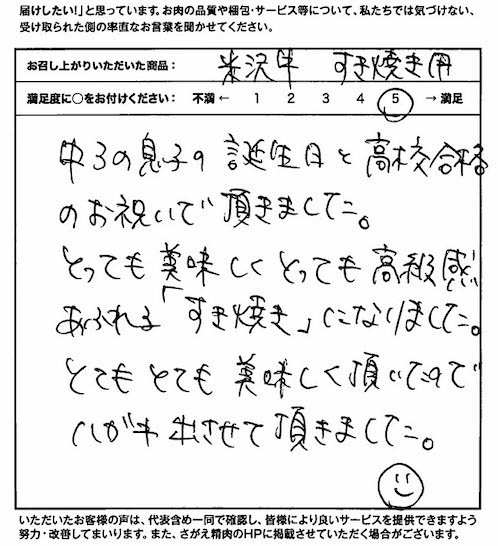 届けしたい!」と思っています。お肉の品質や梱包・サービス等について、私たちでは気づけない、
受け取られた側の率直なお言葉を聞かせてください。
お召し上がりいただいた商品: 米沢牛 すき焼き用
満足度に○をお付けください: 不満 ← 1 2 3 4 5 → 満足
中3の息子の誕生日と高校合格
のお祝いで頂きました。
とっても美味しくとっても高級感
あふれる「すき焼き」になりました。
とてもとても美味しく頂いたので
ハガキ出させて頂きました。
いただいたお客様の声は、代表含め一同で確認し、皆様により良いサービスを提供できますよう
努力・改善してまいります。また、さがえ精肉のHPに掲載させていただく場合がございます。